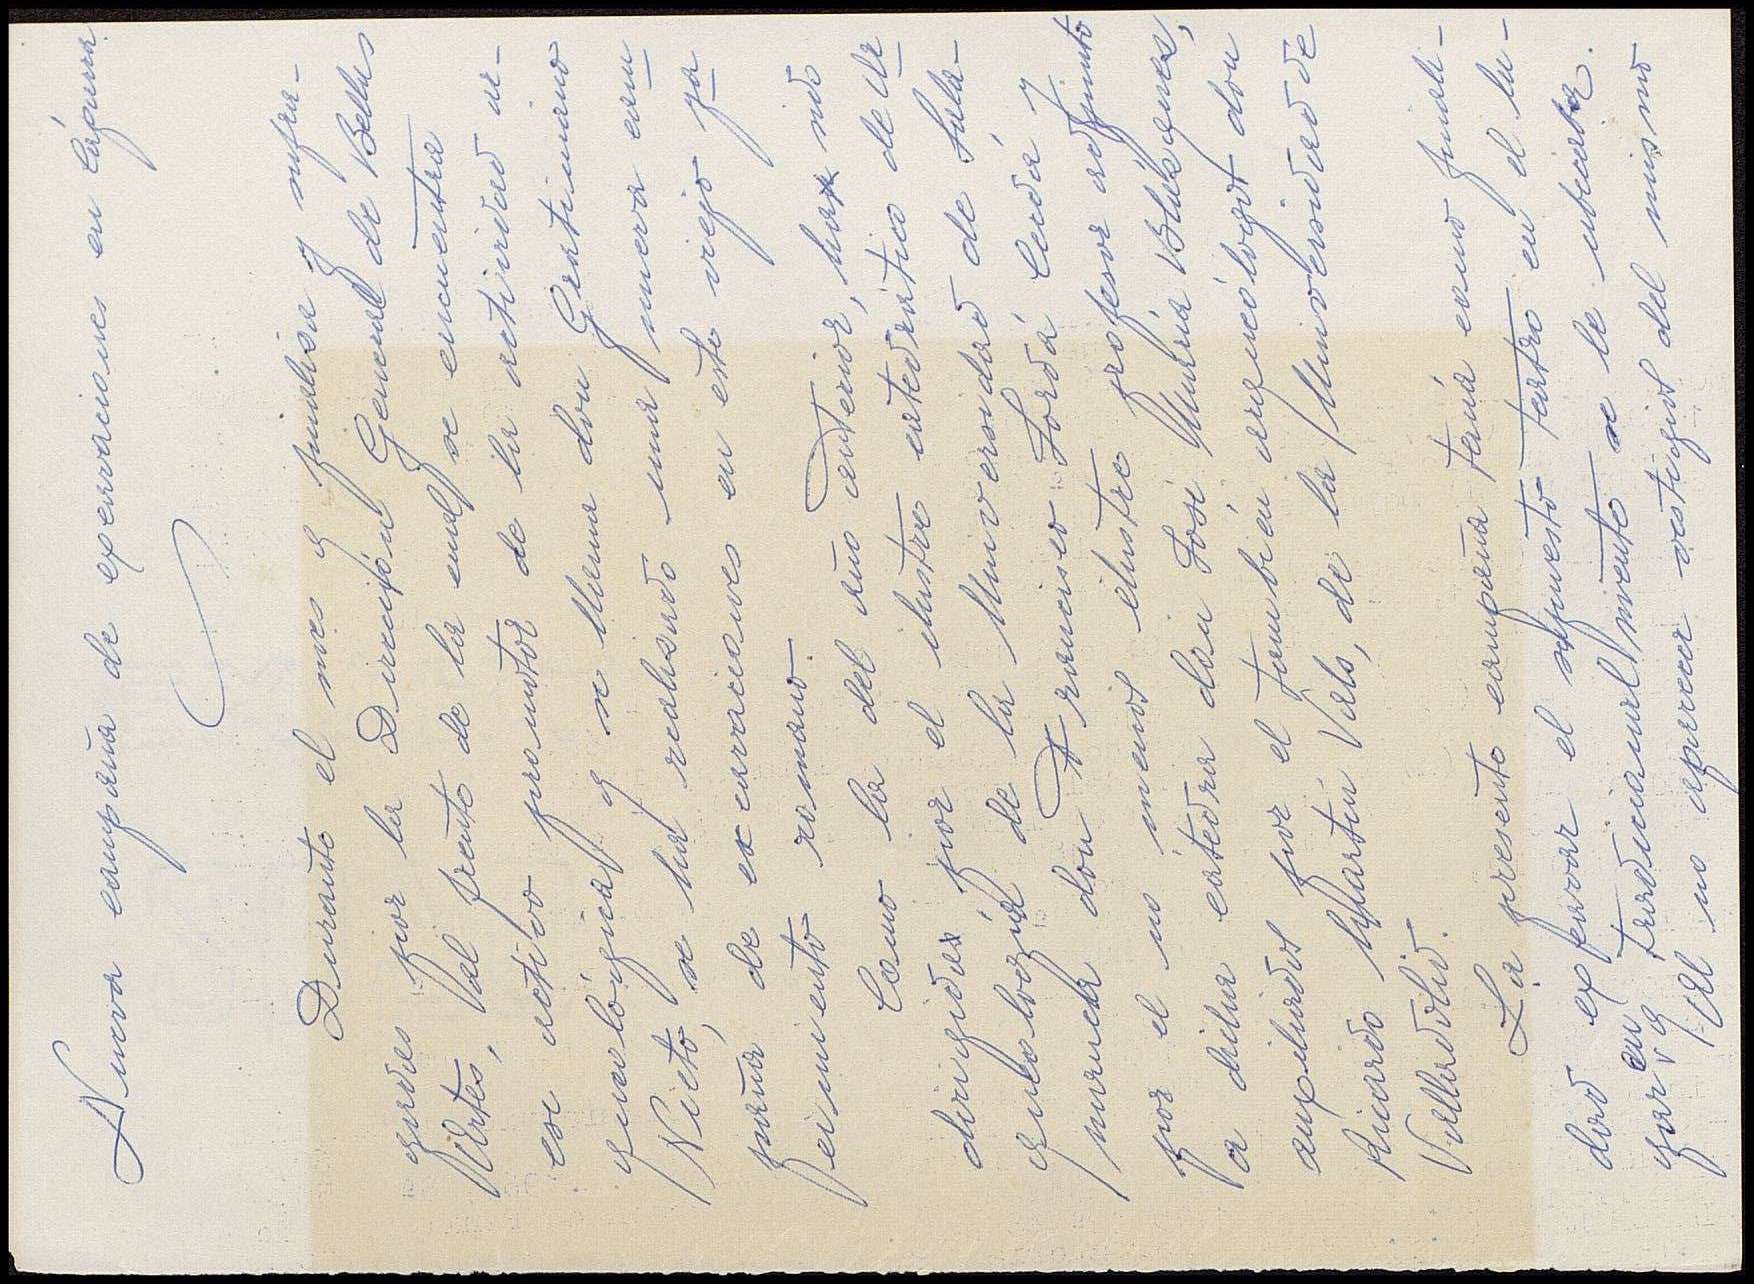 Nueva campaña de excavaciones en Cápara
Durante el mes q finaliza y sufra-
gadas por la Dirección General de Bellas
Artes, al frente de la cual se encuentra
ese activo promotor de la actividad ar-
queológica q se llama don Gratiniano
Nieto, se ha realizado una nueva cam
paña de excavaciones en este viejo ya
cimiento romano.
Como la del año anterior, ha sido
dirigida por el ilustre catedrático de Ar
queología de la Universidad de Sala-
manca don Francisco Jordá Cerdá y
por el no menos ilustre profesor adjunto
a dicha cátedra don José María Blázquez,
auxiliados por el también arqueólogo don
Ricardo Martín Vals, de la Universidad de
Valladolid.
La presente campaña tenía como finali-
dad excavar el supuesto teatro en el lu-
gar en q tradicionalmente se le ubicaba.
Al no aparecer vestigios del mismo